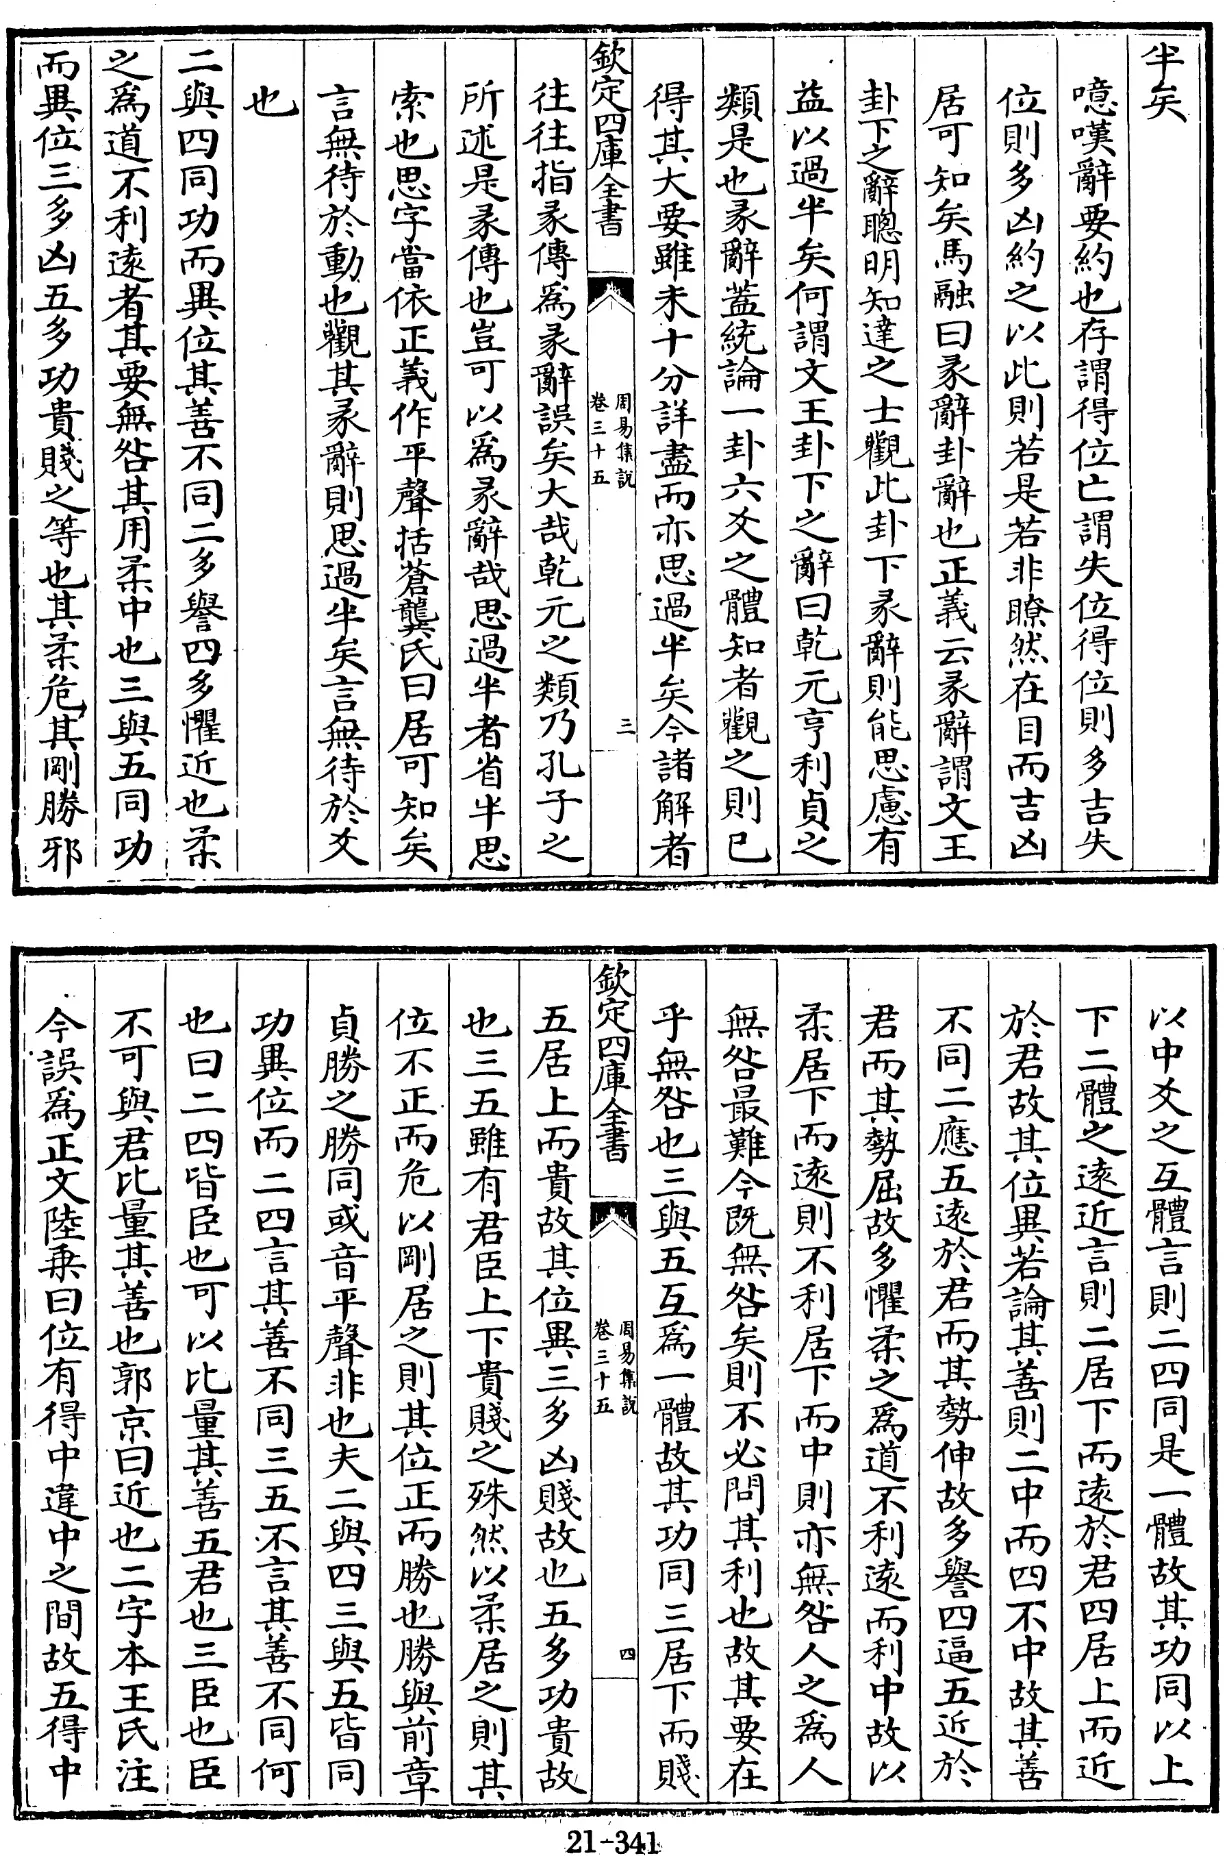 半矣
噫嘆辭要約也存謂得位亡謂失位得位則多吉失
位則多凶約之以此則若是若非瞭然在目而吉凶
居可知矣馬融曰彖辭卦辭也正義云彖辭謂文王
卦下之辭聰明知達之士觀此卦下彖辭則能思慮有
益以過半矣何謂文王卦下之辭曰乾元亨利貞之
類是也彖辭蓋統論一卦六爻之體知者觀之則已
得其大要雖未十分詳盡而亦思過半矣今諸解者
欽定四庫全書
周易集說
卷三十五
三
往往指彖傳為彖辭誤矣大哉乾元之類乃孔子之
所述是彖傳也豈可以為彖辭哉思過半者省半思
索也思字當依正義作平聲括蒼龔氏曰居可知矣
言無待於動也觀其彖辭則思過半矣言無待於爻
也
二與四同功而異位其善不同二多譽四多懼近也柔
之為道不利遠者其要無咎其用柔中也三與五同功
而異位三多凶五多功貴賤之等也其柔危其剛勝邪
以中爻之互體言則二四同是一體故其功同以上
下二體之遠近言則二居下而遠於君四居上而近
於君故其位異若論其善則二中而四不中故其善
不同二應五遠於君而其勢伸故多譽四逼五近於
君而其勢屈故多懼柔之為道不利遠而利中故以
柔居下而遠則不利居下而中則亦無咎人之為人
無咎最難今既無咎矣則不必問其利也故其要在
乎無咎也三與五互為一體故其功同三居下而賤
欽定四庫全書
周易集說
卷三十五
四
五居上而貴故其位異三多凶賤故也五多功貴故
也三五雖有君臣上下貴賤之殊然以柔居之則其
位不正而危以剛居之則其位正而勝也勝與前章
貞勝之勝同或音平聲非也夫二與四三與五皆同
功異位而二四言其善不同三五不言其善不同何
也曰二四皆臣也可以比量其善五君也三臣也臣
不可與君比量其善也郭京曰近也二字本王氏注
今誤為正文陸秉曰位有得中違中之間故五得中
21-341